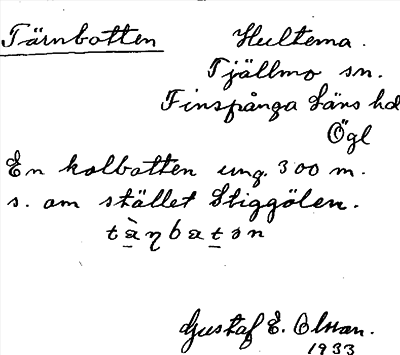 Tärnbotten Hultema.
Tjällmo sn.
Finspånga Läns hd
Ögl
En kolbotten ung. 300 m.
s. om stället Stiggölen.
Gustaf E. Olsson.
1933